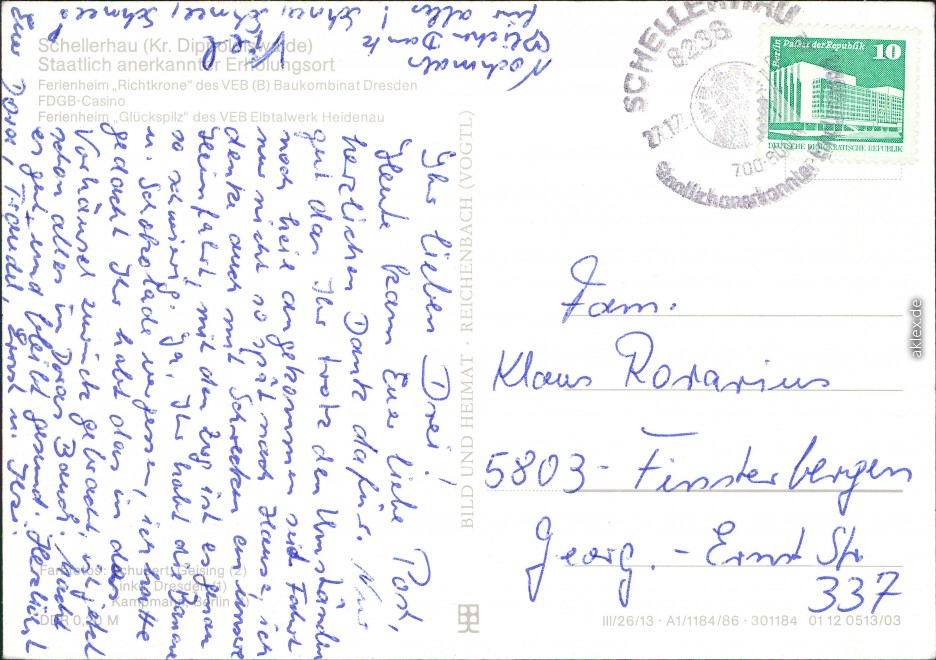 Schellerhau (Kr. Dippoldiswalde)
Staatlich anerkannter Erholungsort
Ferienheim „Richtkrone“ des VEB (B) Baukombinat Dresden
FDGB-Casino
Ferienheim „Glückspilz“ des VEB Elbtalwerk Heidenau
Ihr lieben Drei!
Heute kam Euer liebe Post,
herzlichen Dank dafür. Nur
gut das Ihr trotz den Umständen
noch heil angekommen seid. Fahrt
nur nicht so spät nach Hause, ich
denke auch mit Schrecken an unsere
Heimfahrt, mit den Zug ist es genau
so schwierig. Ja, Ihr habt die Banane
u. Schokolade vergessen, ich hatte
gedacht Ihr habt das in das
Vorhäusel zurück gebracht, ist jetzt
schon alles in Doras Bauch. Macht
es gut und bleibt gesund. Herzlichst
Eure Dora, Traudel, Ernst u.
Nochmals
Dank
für alles! Schnee, Schnee, Schnee!
Farbfotos: Schubert, Geising (2)
Linke, Dresden (1)
Kampmann, Berlin
DDR 0,20 M
BILD UND HEIMAT · REICHENBACH (VOGTL)
SCHELLERHAU
8238
27.12.
700-80
Staatlich anerkannter Erholungsort
Berlin Palast der Republik
10
DEUTSCHE DEMOKRATISCHE REPUBLIK
Fam.
Klaus Rorarius
5803 - Finsterbergen
Georg. - Ernst Str
337
III/26/13 · A1/1184/86 · 301184 01 12 0513/03
aklex.de